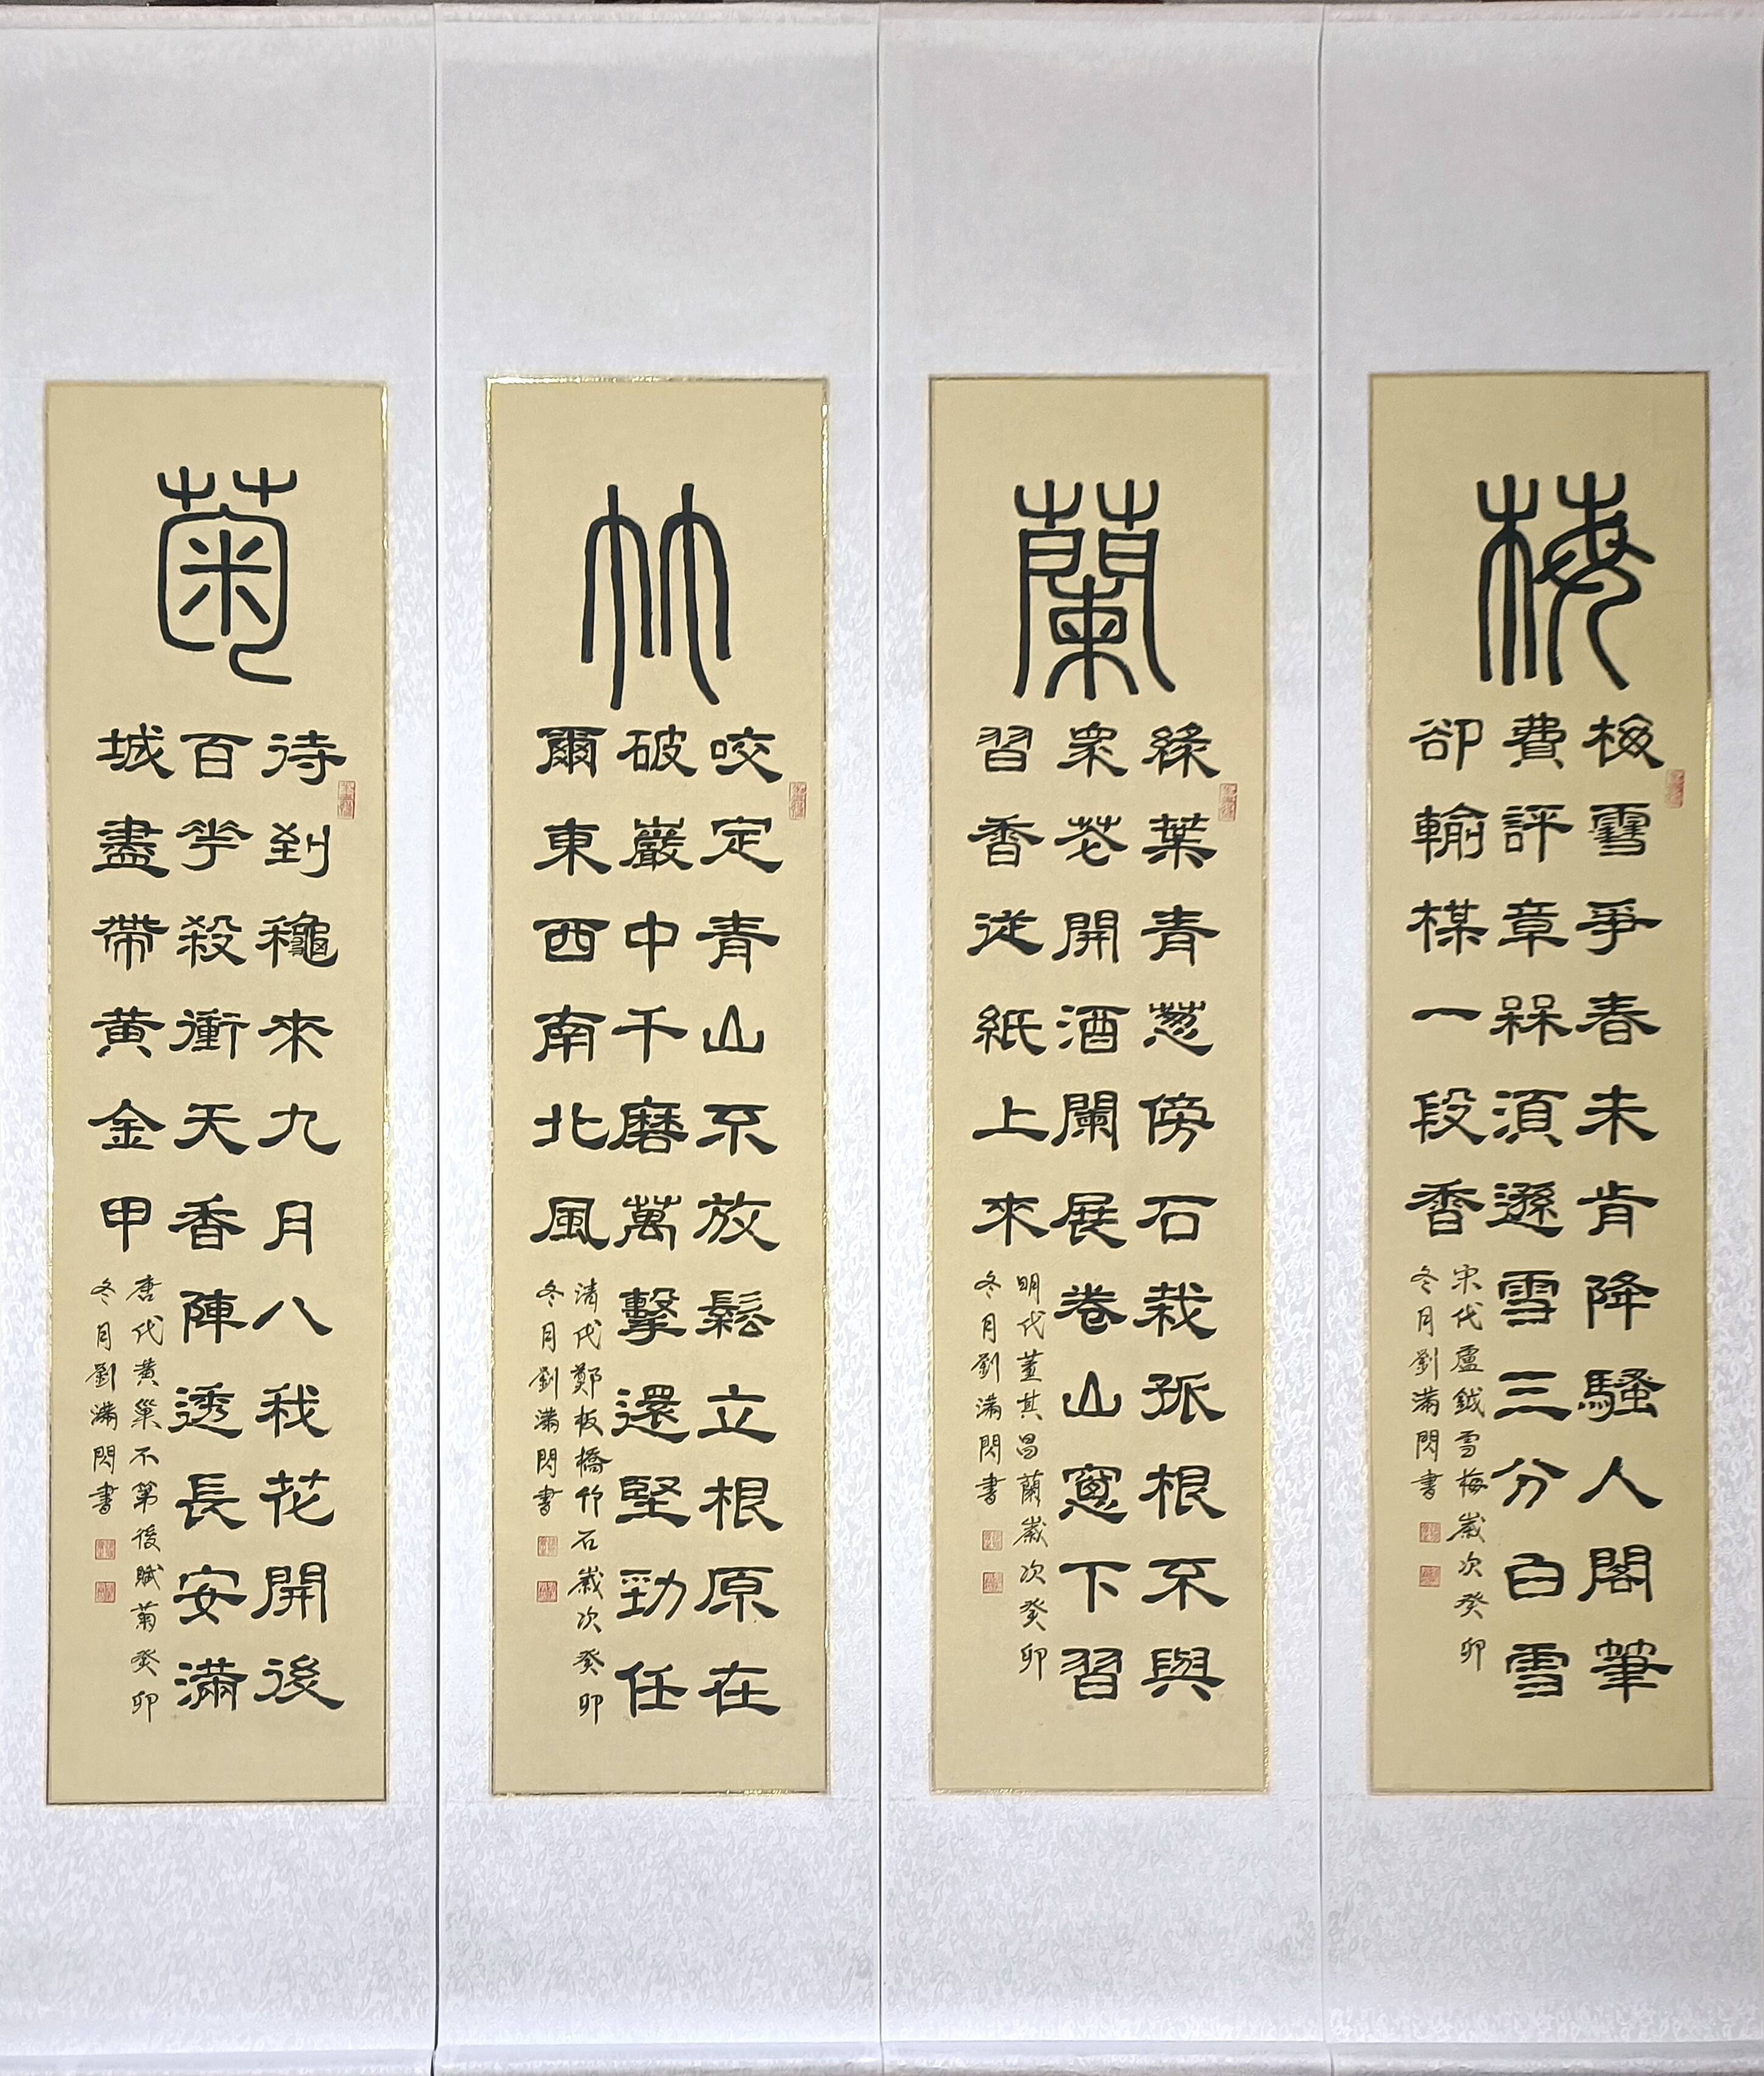 梅
梅雪爭春未肯降騷人閣筆
費評章梅須遜雪三分白雪
卻輸楳一段香
宋代盧鉞雪梅歲次癸卯
冬月劉滿閃書
蘭
綠葉青蔥傍石栽孤根不與
眾花開酒闌展卷山窻下習
習香從紙上來
明代董其昌蘭歲次癸卯
冬月劉滿閃書
竹
咬定青山不放鬆立根原在
破巖中千磨萬擊還堅勁任
爾東西南北風
清代鄭板橋竹石歲次癸卯
冬月劉滿閃書
菊
待到龝來九月八我花開後
百花殺衝天香陣透長安滿
城盡帶黃金甲
唐代黃巢不第後賦菊癸卯
冬月劉滿閃書